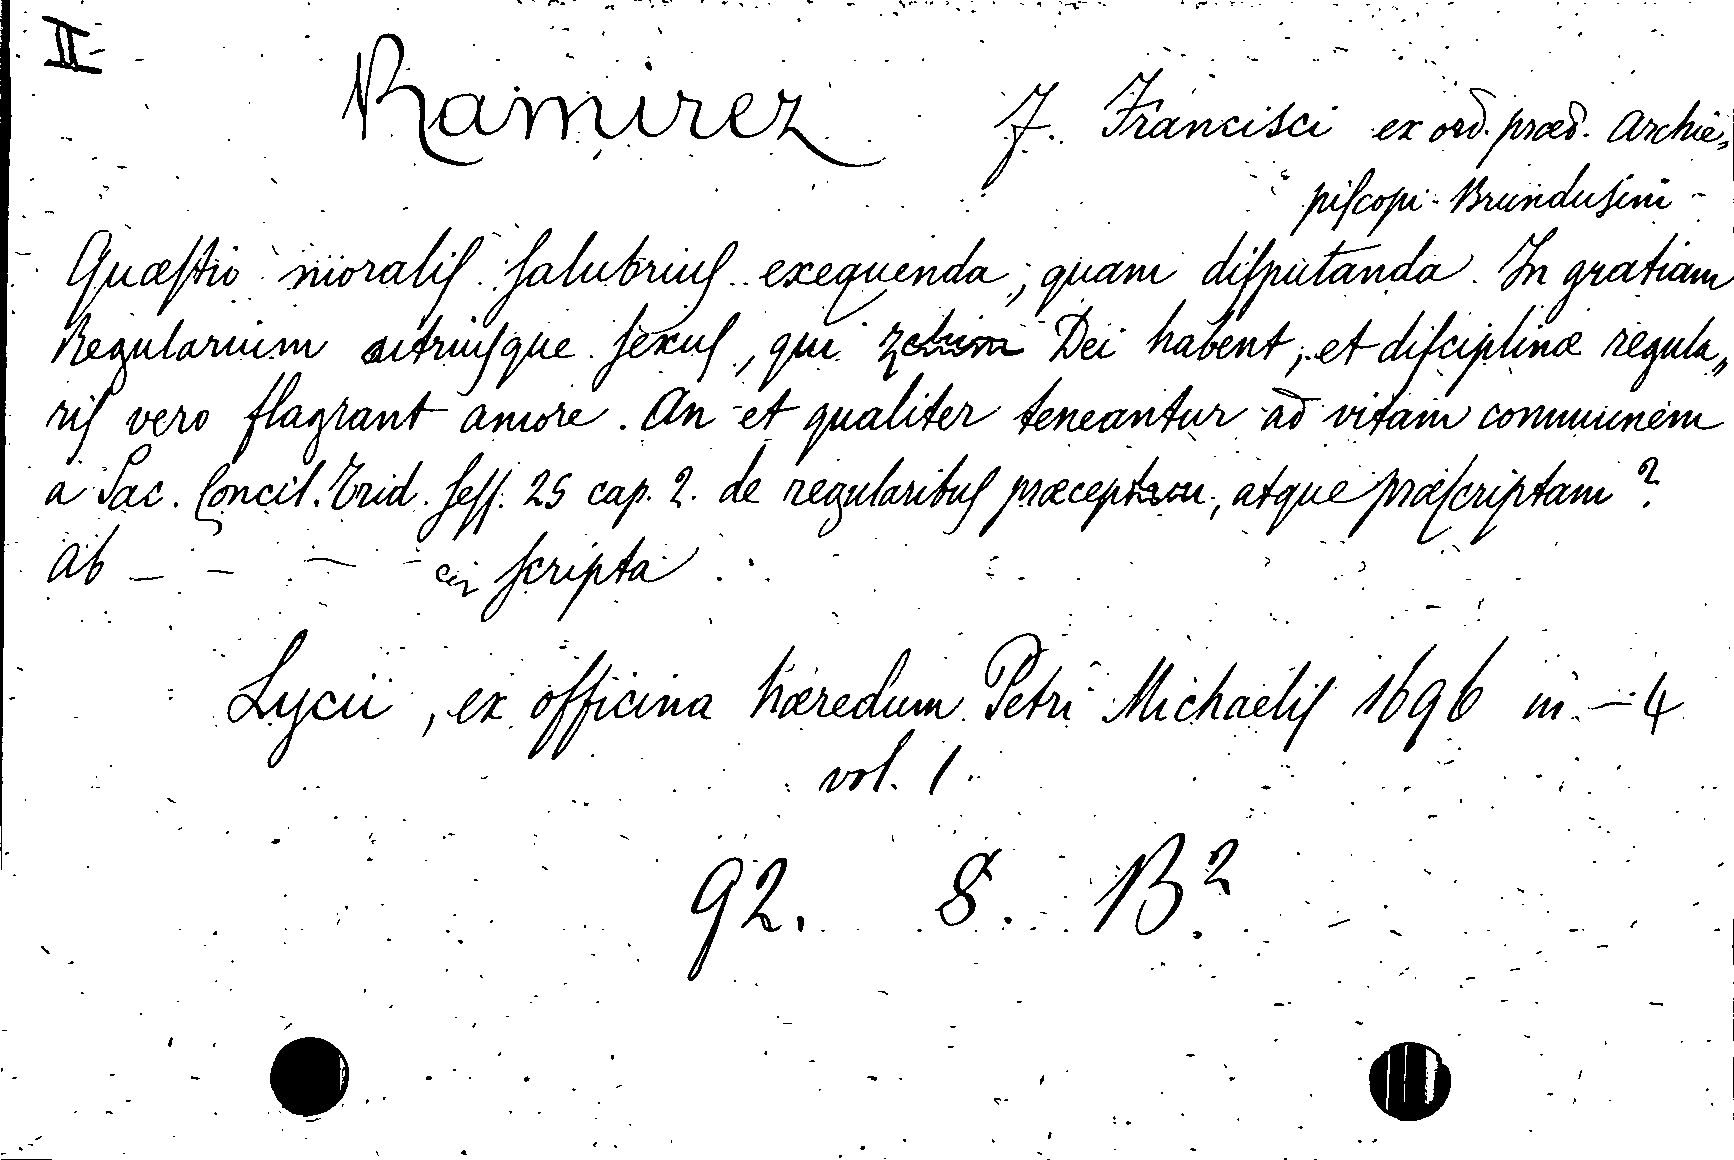 II-
Ramirez F. Francisci ex ord. præd. Archie„
piſcopi Brundusini
Quæſtio moraliſ ſalubriuſ exequenda, quam diſputanda. In gratiam
Regularium utriuſque ſexuſ, qui zelum Dei habent, et diſciplinæ regula„
riſ vero flagrant amore. An et qualiter teneantur ad vitam communem
a Sac. Concil. Trid. ſeſſ. 25 cap. 2. de regularibuſ præceptam, atque præſcriptam?
Ab - - - - ſcripta
Lycii, ex officina hæredum Petri Michaeliſ 1696 in - 4
vol. 1.
92. 8. B²